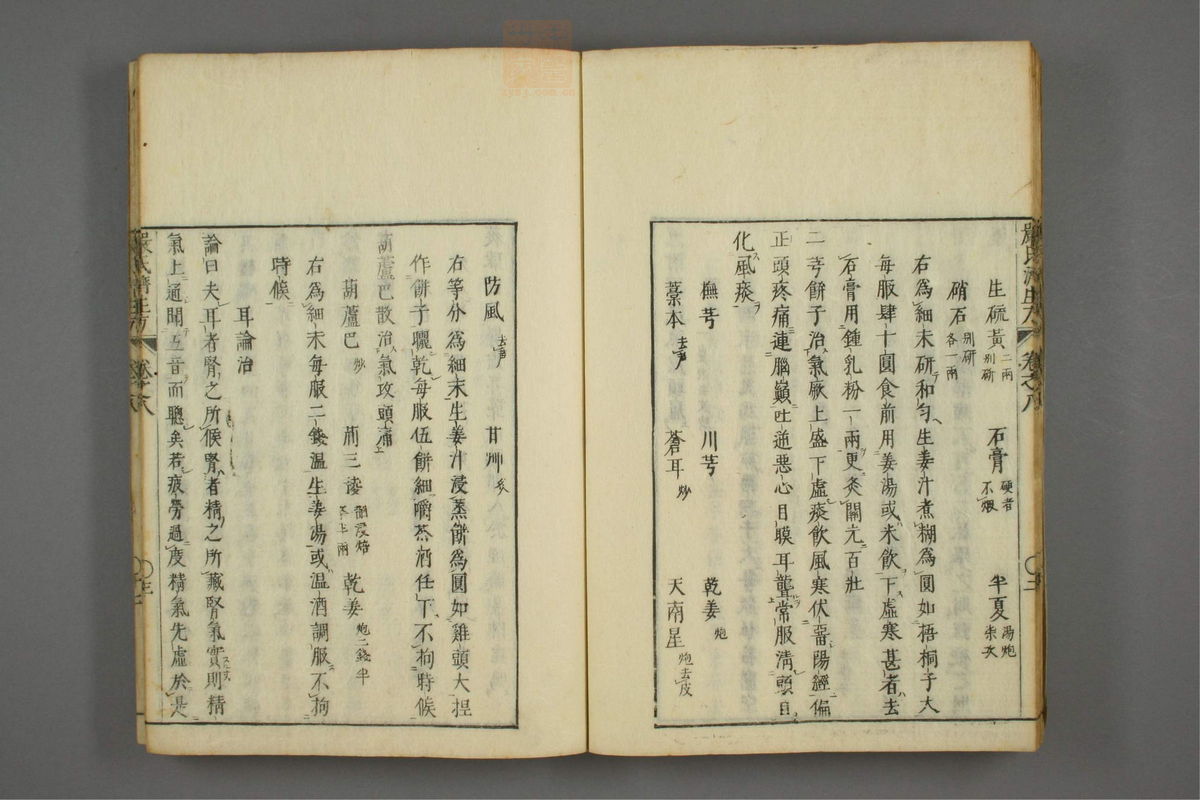 生硫黃二兩別研 石膏硬者不煅 半夏湯炮柒次
硝石別研各一兩
右為細末研和勻生姜汁煮糊為圓如梧桐子大
每服肆十圓食前用姜湯或米飲下虛寒甚者去
石膏用鍾乳粉一兩更灸關元百壯
二芎餅子治氣厥上盛下虛痰飲風寒伏畱陽經偏
正頭疼痛連腦巔吐逆惡心目瞑耳聾常服淸頭目
化風痰
撫芎 川芎 乾姜炮
藁本去芦 蒼耳炒 天南星炮去皮
防風去芦 甘艸炙
右等分為細末生姜汁浸蒸餅為圓如雞頭大捏
作餅子曬乾每服伍餅細嚼茶酒任下不拘時候
葫蘆巴散治氣攻頭痛
葫蘆巴炒 荊三棱 乾姜炮二錢半
右為細末每服二錢溫生姜湯或溫酒調服不拘
時候
耳論治
論曰夫耳者腎之所候腎者精之所藏腎氣實則精
氣上通聞五音而聰矣若疲勞過度精氣先虛於是
嚴氏濟生方 卷之八
zysj.com.cn